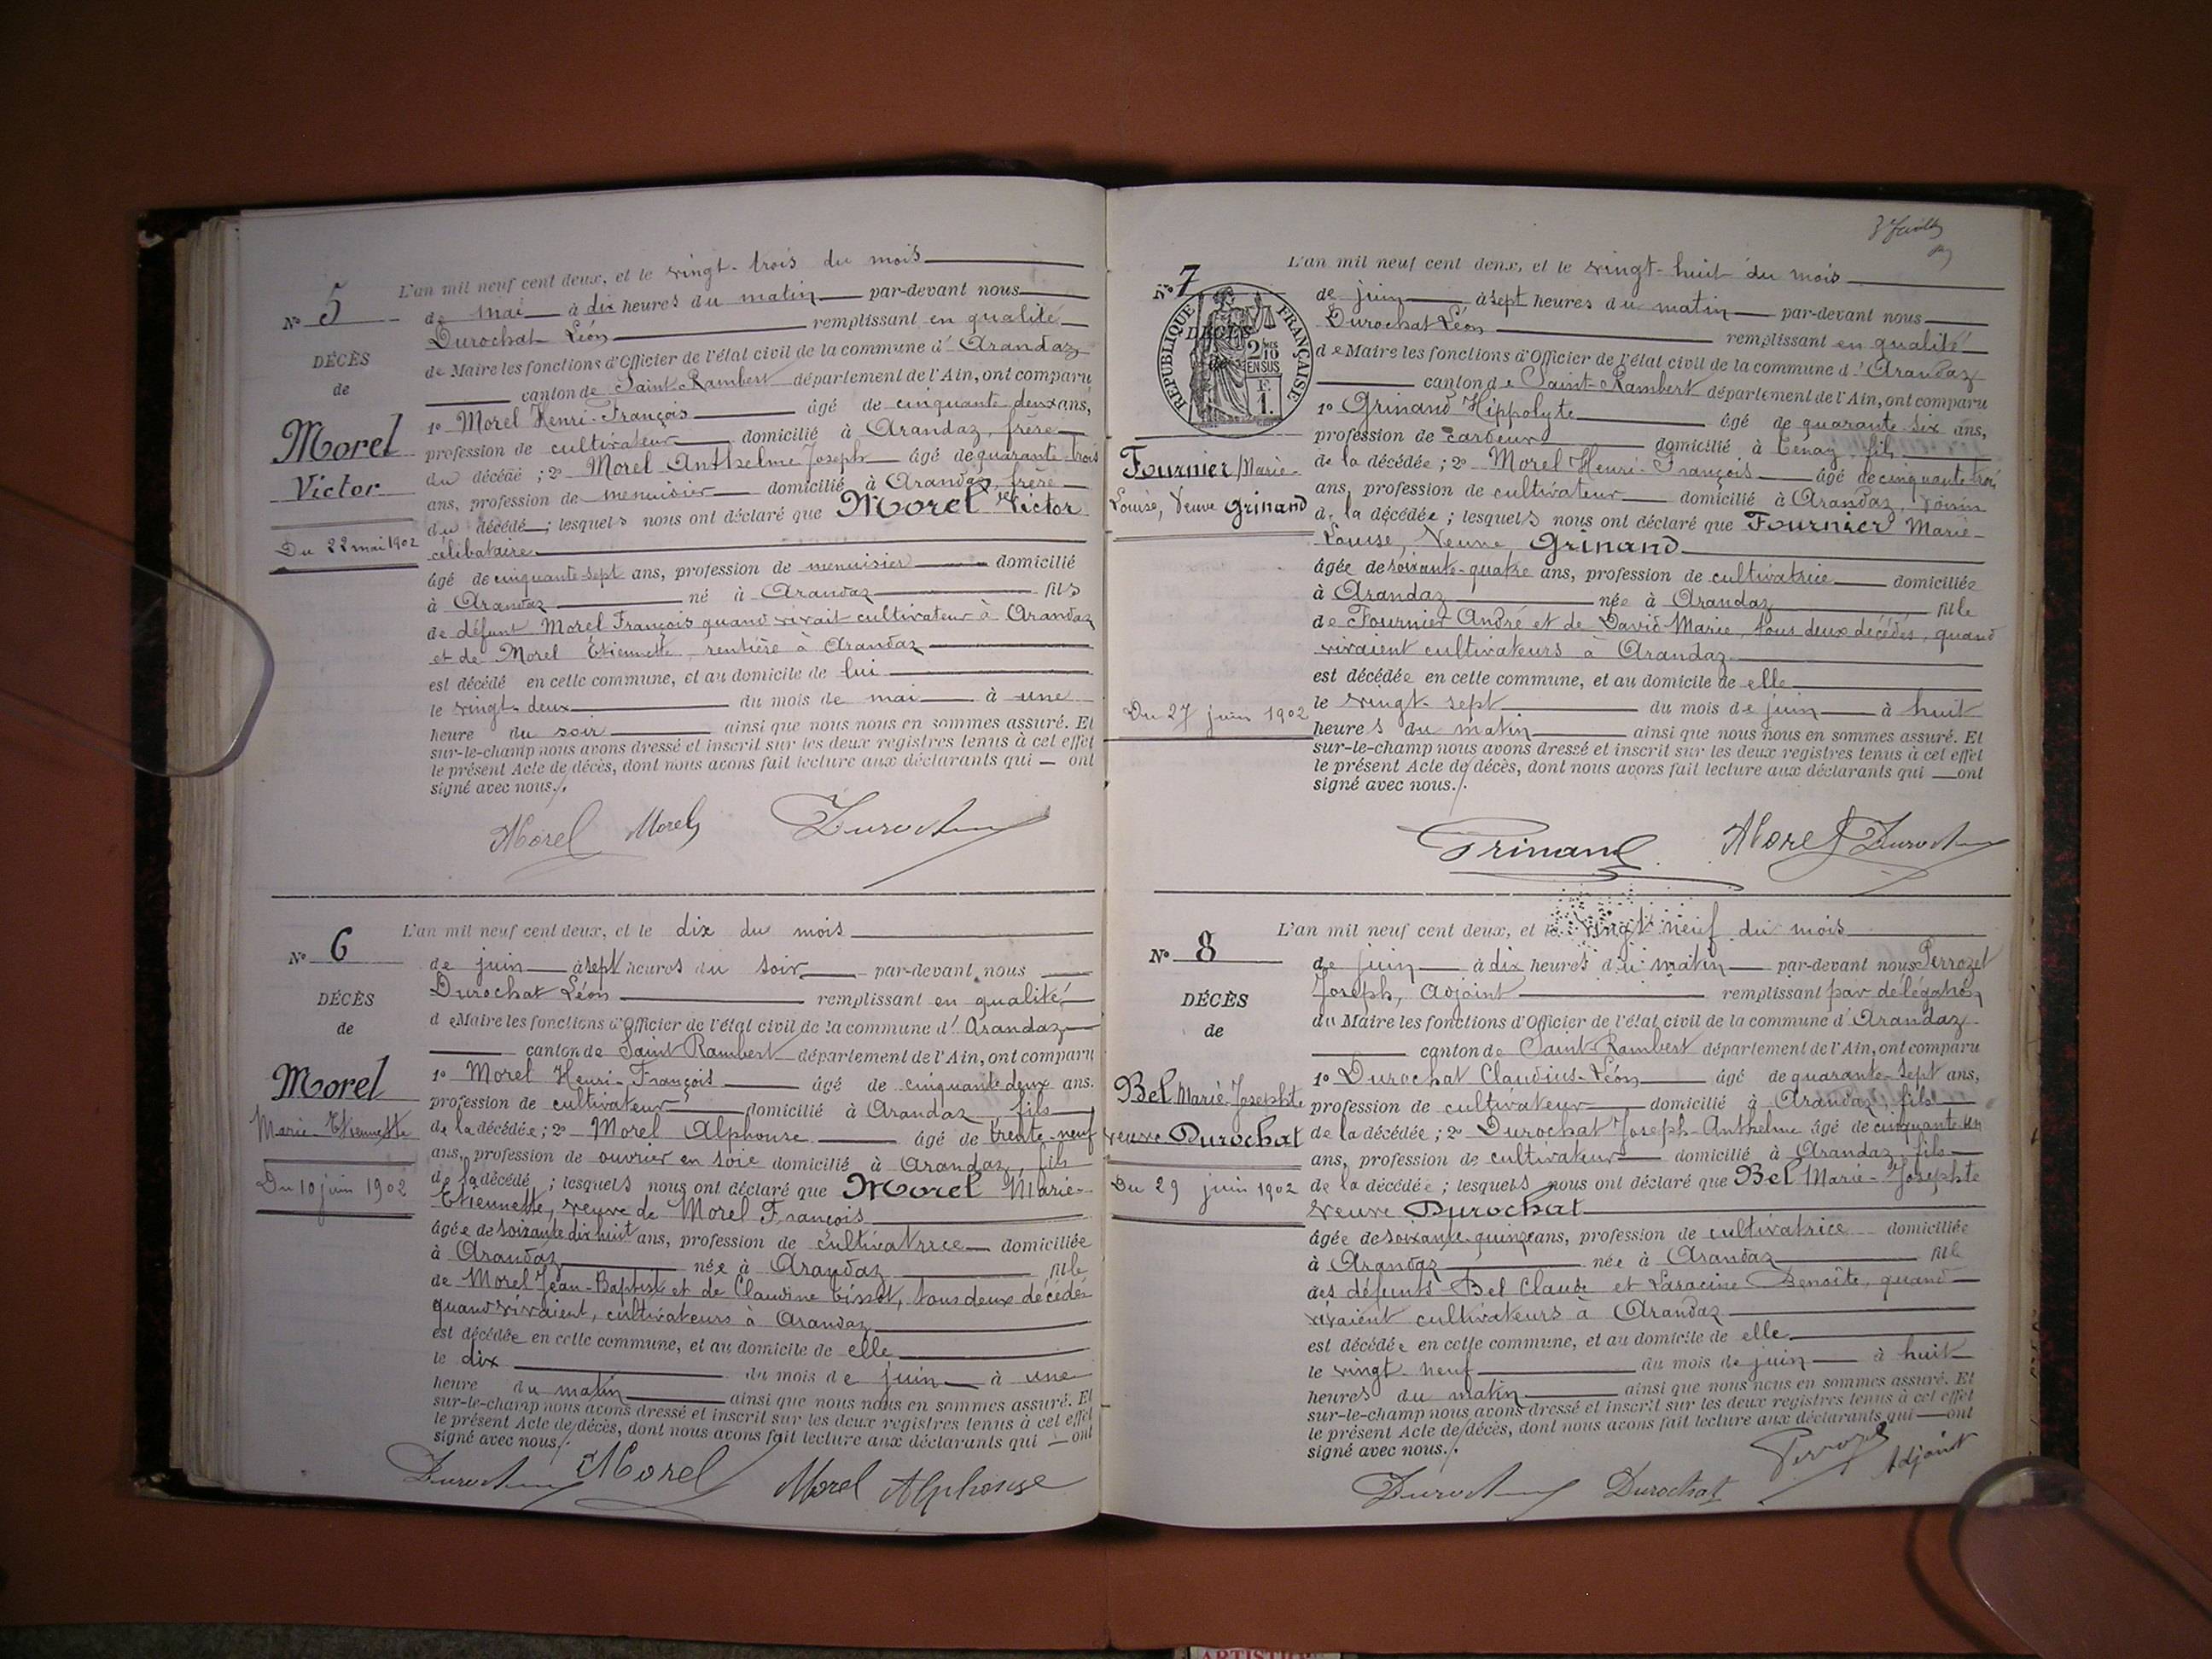 L'an mil neuf cent deux, et le vingt-trois du mois
N° 5
de mai à dix heures du matin par-devant nous
Durochat Léon remplissant en qualité
DÉCÈS
de Maire les fonctions d'Officier de l'état civil de la commune d'Arandaz
de
canton de Saint-Rambert département de l'Ain, ont comparu
1° Morel Henri-François âgé de cinquante deux ans,
Morel
profession de cultivateur domicilié à Arandaz, frère
du décédé ; 2° Morel Anthelme Joseph âgé de quarante-trois
Victor
ans, profession de menuisier domicilié à Arandaz, frère
du décédé ; lesquels nous ont déclaré que Morel Victor
Du 22 mai 1902
célibataire
âgé de cinquante-sept ans, profession de menuisier domicilié
à Arandaz né à Arandaz fils
de défunt Morel François quand vivait cultivateur à Arandaz
et de Morel Etiennette rentière à Arandaz
est décédé en cette commune, et au domicile de lui
le vingt-deux du mois de mai à une
heure du soir ainsi que nous nous en sommes assuré. Et
sur-le-champ nous avons dressé et inscrit sur les deux registres tenus à cet effet
le présent Acte de décès, dont nous avons fait lecture aux déclarants qui — ont
signé avec nous./.
Morel Morel Durochat
L'an mil neuf cent deux, et le dix du mois
N° 6
de juin à sept heures du soir par-devant nous
Durochat Léon remplissant en qualité
DÉCÈS
de Maire les fonctions d'Officier de l'état civil de la commune d'Arandaz
de
canton de Saint Rambert département de l'Ain, ont comparu
1° Morel Henri-François âgé de cinquante deux ans.
Morel
profession de cultivateur domicilié à Arandaz, fils
Marie-Etiennette
de la décédée ; 2° Morel Alphonse âgé de trente-neuf
ans, profession de ouvrier en soie domicilié à Arandaz, fils
Du 10 juin 1902
de la décédé ; lesquels nous ont déclaré que Morel Marie-
Etiennette, veuve de Morel François
âgée de soixante dix huit ans, profession de cultivatrice domiciliée
à Arandaz née à Arandaz fille
de Morel Jean-Baptiste et de Claudine Tissot, tous deux décédés
quand vivaient, cultivateurs à Arandaz
est décédée en cette commune, et au domicile de elle
le dix du mois de juin à une
heure du matin ainsi que nous nous en sommes assuré. Et
sur-le-champ nous avons dressé et inscrit sur les deux registres tenus à cet effet
le présent Acte de décès, dont nous avons fait lecture aux déclarants qui — ont
signé avec nous./.
Durochat Morel Morel Alphonse
L'an mil neuf cent deux, et le vingt-huit du mois
N° 7
de juin à sept heures du matin par-devant nous
Durochat Léon remplissant en qualité
RÉPUBLIQUE FRANÇAISE
DÉCÈS
2 MES
10
EN SUS
F.
1.
de Maire les fonctions d'Officier de l'état civil de la commune d'Arandaz
canton de Saint-Rambert département de l'Ain, ont comparu
1° Grinand Hippolyte âgé de quarante six ans,
profession de cardeur domicilié à Tenay fils
Fournier Marie-
de la décédée ; 2° Morel Henri-François âgé de cinquante trois
Louise, Veuve Grinand
ans, profession de cultivateur domicilié à Arandaz, voisin
de la décédée ; lesquels nous ont déclaré que Fournier Marie-
Louise, Veuve Grinand
âgée de soixante-quatre ans, profession de cultivatrice domiciliée
à Arandaz née à Arandaz fille
de Fournier André et de David Marie, tous deux décédés, quand
vivaient cultivateurs à Arandaz
est décédée en cette commune, et au domicile de elle
Du 27 juin 1902
le vingt-sept du mois de juin à huit
heures du matin ainsi que nous nous en sommes assuré. Et
sur-le-champ nous avons dressé et inscrit sur les deux registres tenus à cet effet
le présent Acte de décès, dont nous avons fait lecture aux déclarants qui — ont
signé avec nous./.
Grinand Morel Durochat
L'an mil neuf cent deux, et le vingt neuf du mois
N° 8
de juin à dix heures du matin par-devant nous Perrozet
Joseph, adjoint remplissant par délégation
DÉCÈS
du Maire les fonctions d'Officier de l'état civil de la commune d'Arandaz
de
canton de Saint-Rambert département de l'Ain, ont comparu
1° Durochat Claudius-Léon âgé de quarante-sept ans,
Bel Marie-Josephte
profession de cultivateur domicilié à Arandaz, fils
veuve Durochat
de la décédée ; 2° Durochat Joseph-Anthelme âgé de cinquante un
ans, profession de cultivateur domicilié à Arandaz, fils
Du 29 juin 1902
de la décédée ; lesquels nous ont déclaré que Bel Marie-Josephte
veuve Durochat
âgée de soixante-quinze ans, profession de cultivatrice domiciliée
à Arandaz née à Arandaz fille
des défunts Bel Claude et Laracine Benoîte, quand
vivaient cultivateurs à Arandaz
est décédée en cette commune, et au domicile de elle
le vingt neuf du mois de juin à huit
heures du matin ainsi que nous nous en sommes assuré. Et
sur-le-champ nous avons dressé et inscrit sur les deux registres tenus à cet effet
le présent Acte de décès, dont nous avons fait lecture aux déclarants qui — ont
signé avec nous./.
Durochat Durochat Perrozet Adjoint